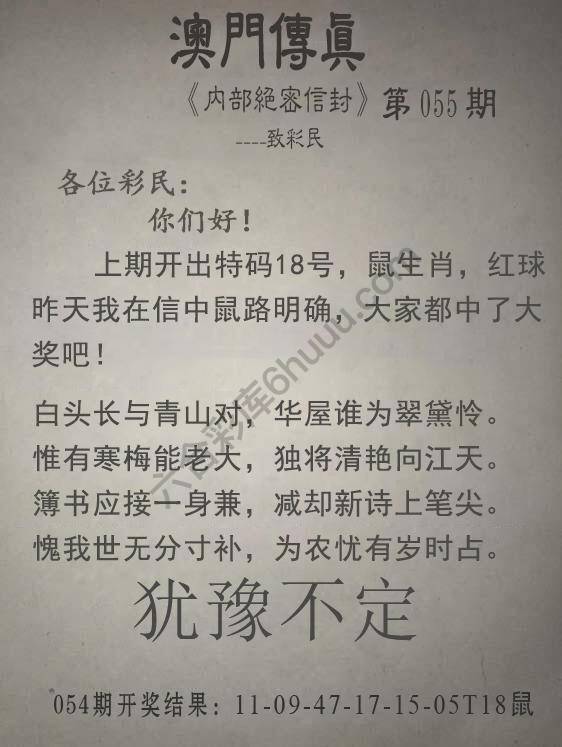 澳門傳眞
《内部絕密信封》第055期
----致彩民
各位彩民：
你们好！
上期开出特码18号，鼠生肖，红球
昨天我在信中鼠路明确，大家都中了大
奖吧！
白头长与青山对，华屋谁为翠黛怜。
惟有寒梅能老大，独将清艳向江天。
簿书应接一身兼，减却新诗上笔尖。
愧我世无分寸补，为农忧有岁时占。
犹豫不定
054期开奖结果：11-09-47-17-15-05T18鼠
六合彩库6huuu.com